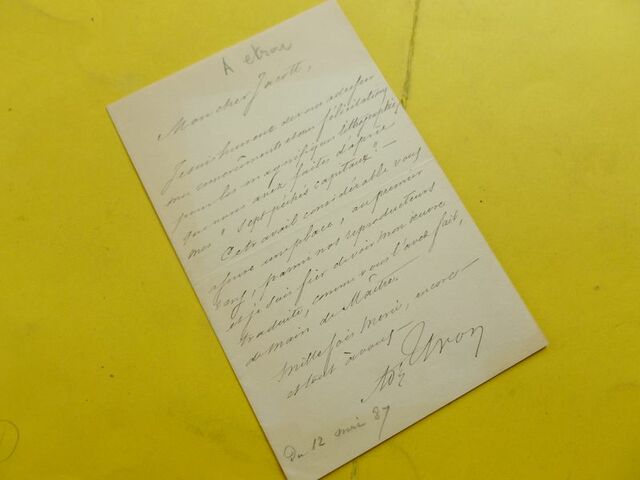 A etron
Mon cher Jacott,
Je suis heureux de vous adresser
mes compliments et mes félicitations
pour les magnifiques lithographies
que vous avez faites d'après
mes " Sept péchés capitaux " –
Ce travail considérable vous
assure une place, au premier
rang, parmi nos reproducteurs
et je suis fier de voir mon œuvre
traduite, comme vous l'avez fait,
de main de Maître.
Mille fois merci, encore –
et tout à vous –
Du 12 mai 87